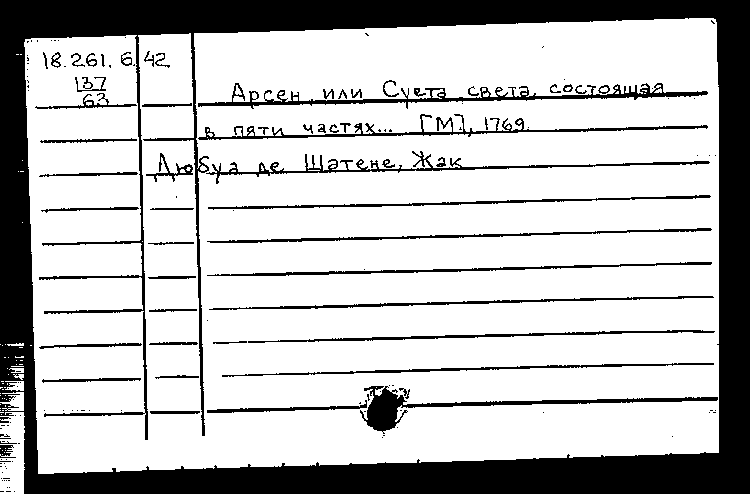 18.261.6.42
137
63
Арсен, или Суета света, состоящая
в пяти частях... [М], 1769.
Дюбуа де Шатене, Жак